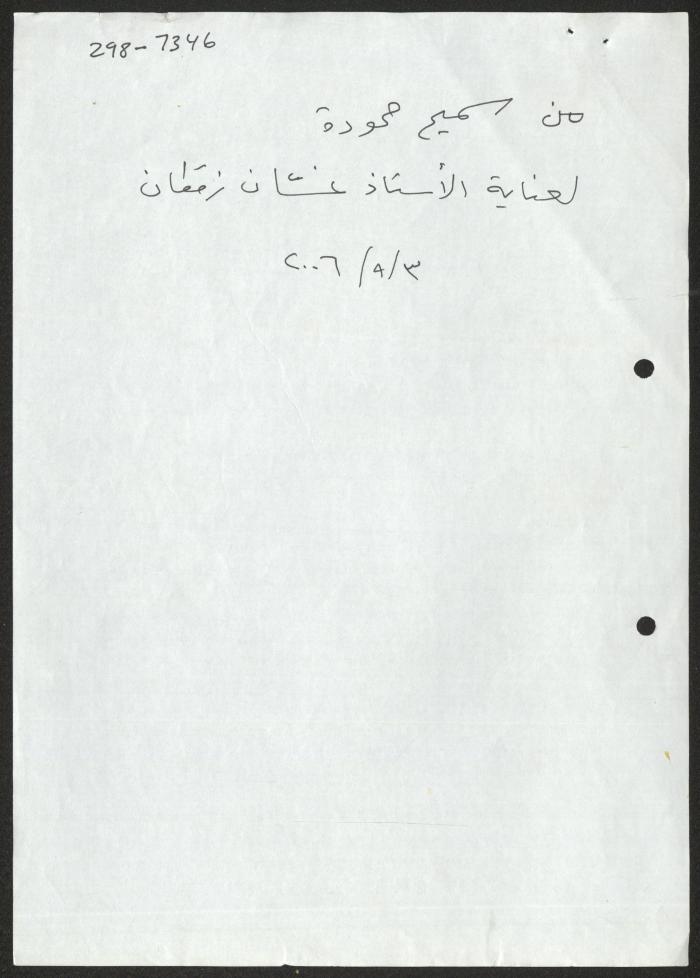 298-7346
من سميح حمودة
لعناية الأستاذ غسّان زقطان
٣/٨/٢٠٠٦